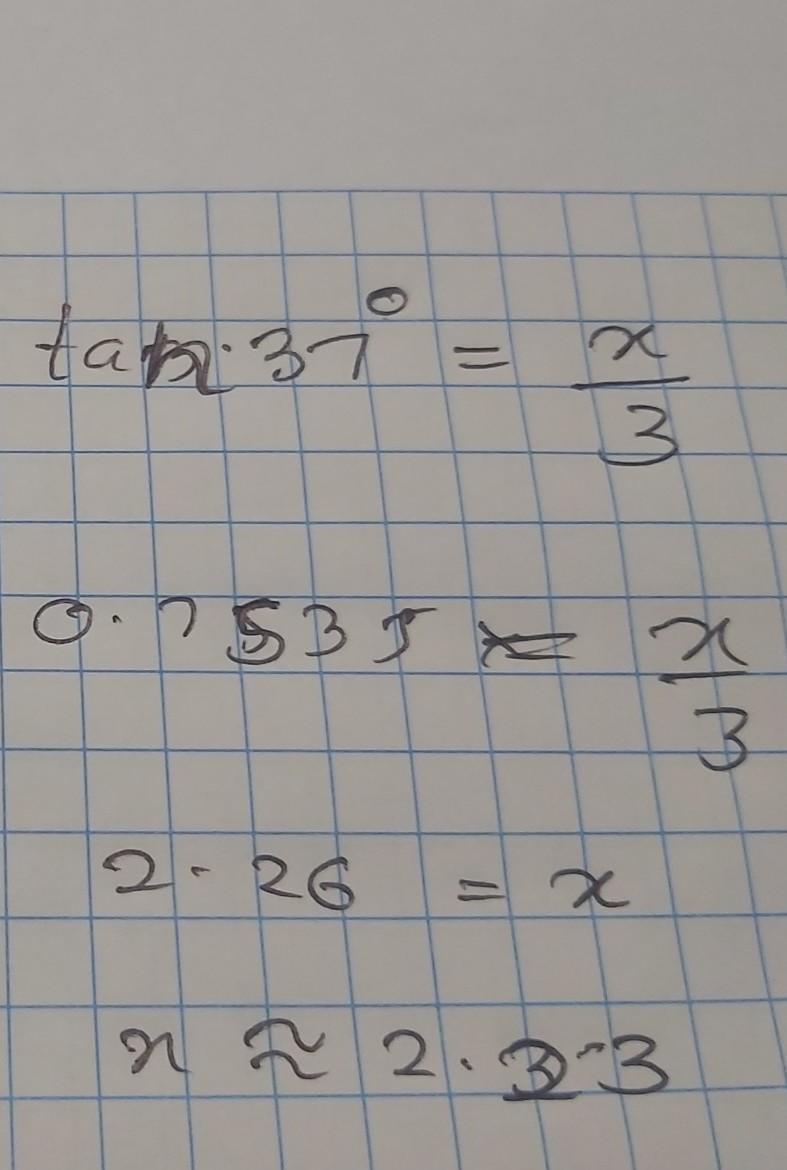 tan 37° = x/3
0.7535 = x/3
2.26 = x
x ≈ 2.3